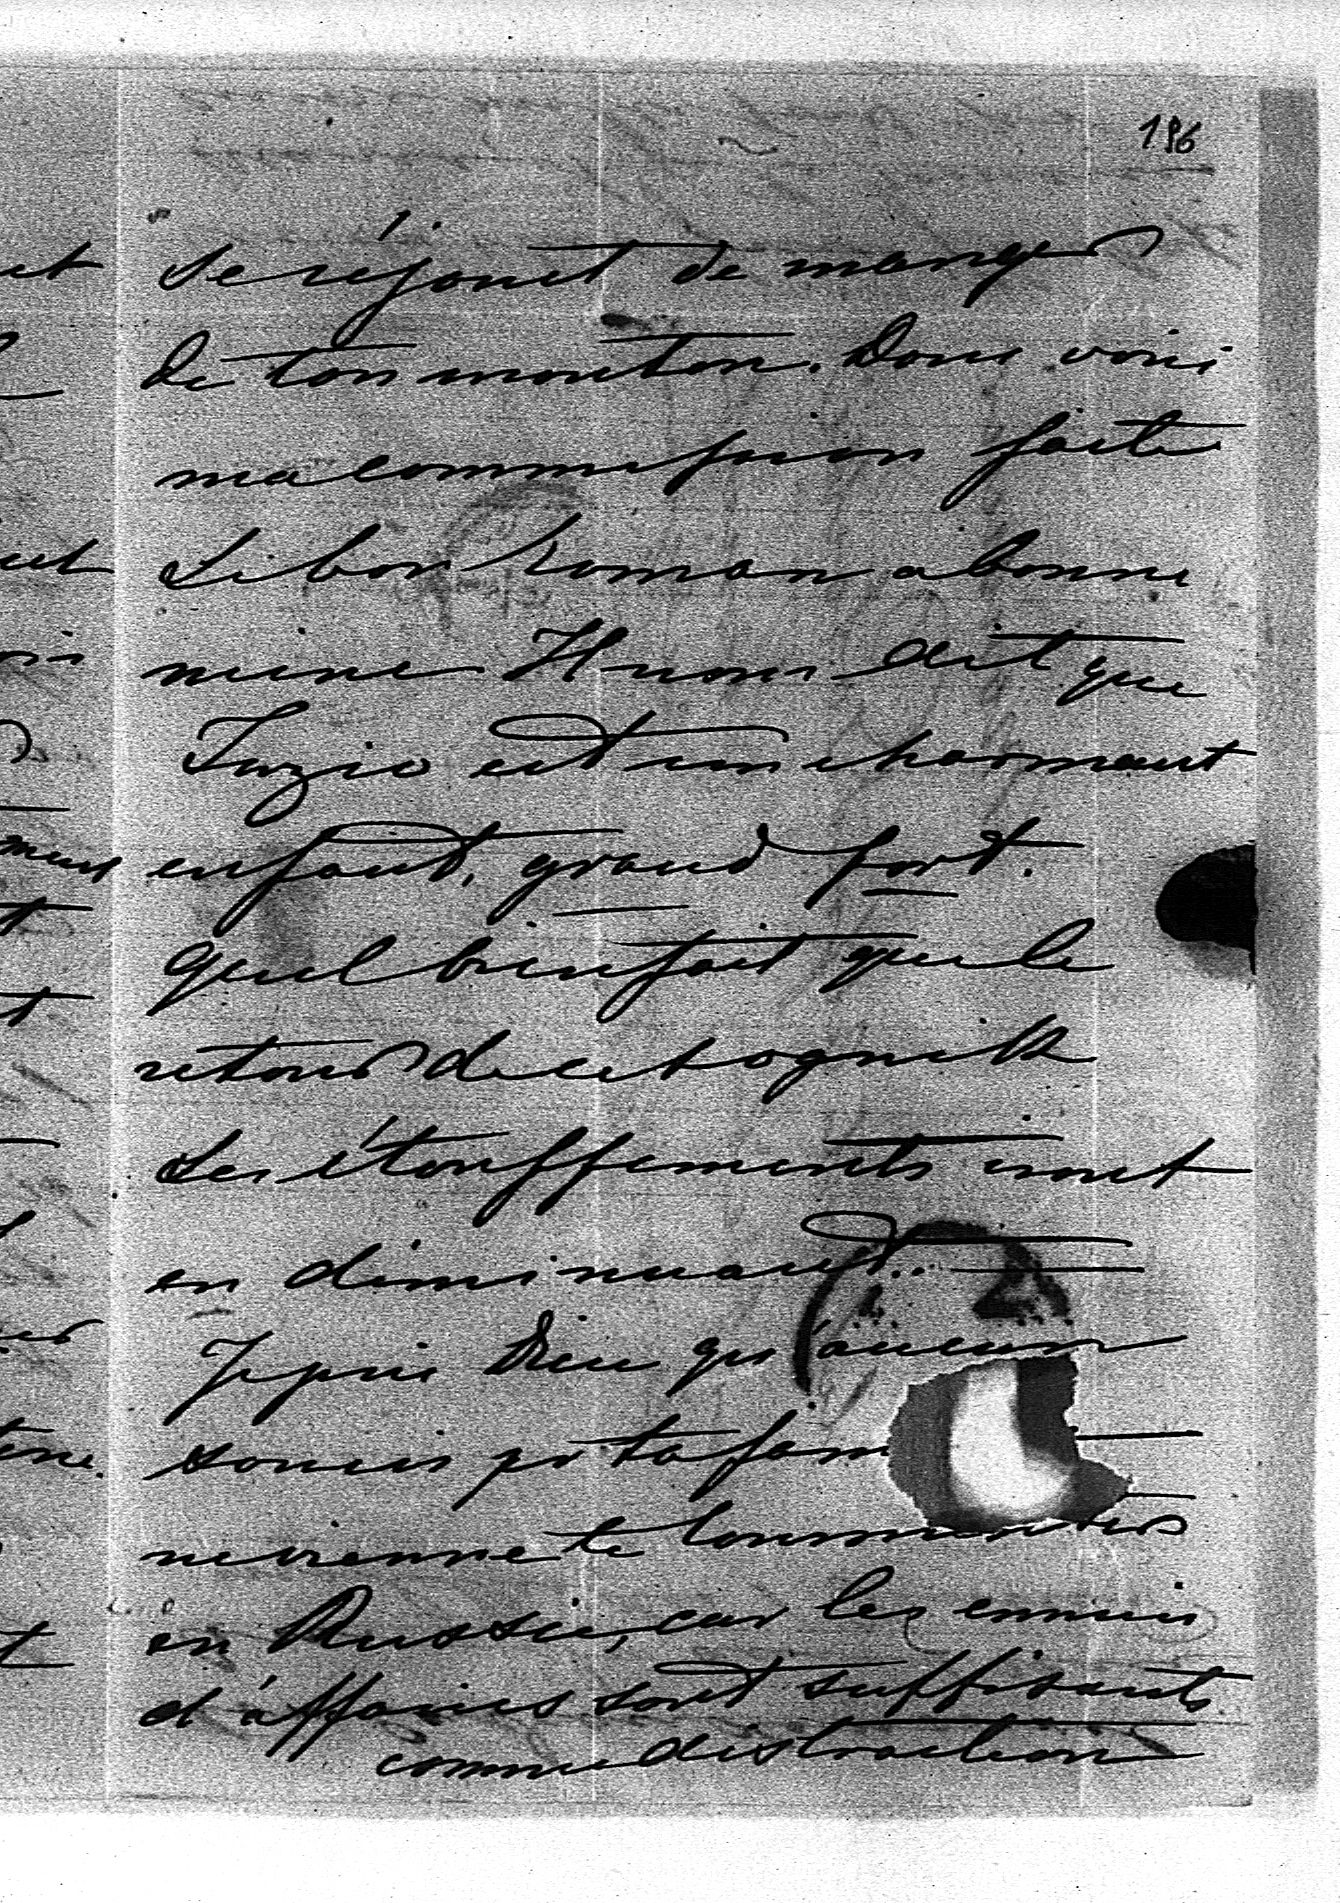 186
se réjouit de manger
de ton mouton. Donc voici
ma commission faite
Le bon Roman a bonne
mine Il nous dit que
Juzio est un charmant
enfant, grand fort.
Quel bienfait que le
retour de cet ognisk
Les étouffements iront
en diminuant..
Je prie Dieu qu'aucun
soucis pr ta fam
ne vienne te tourmenter
en Russie, car les ennuis
d'affaires sont suffisants
comme distraction